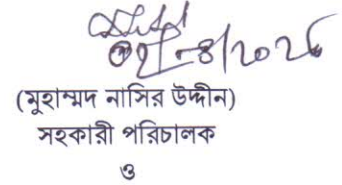 (মুহাম্মদ নাসির উদ্দীন)
সহকারী পরিচালক
ও